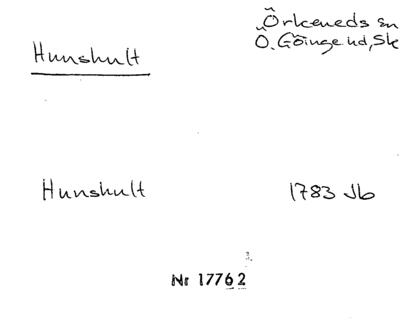 Örkeneds sn
Hunshult
Ö. Göinge hd, Sk
Hunshult 1783 Jb
Nr 17762